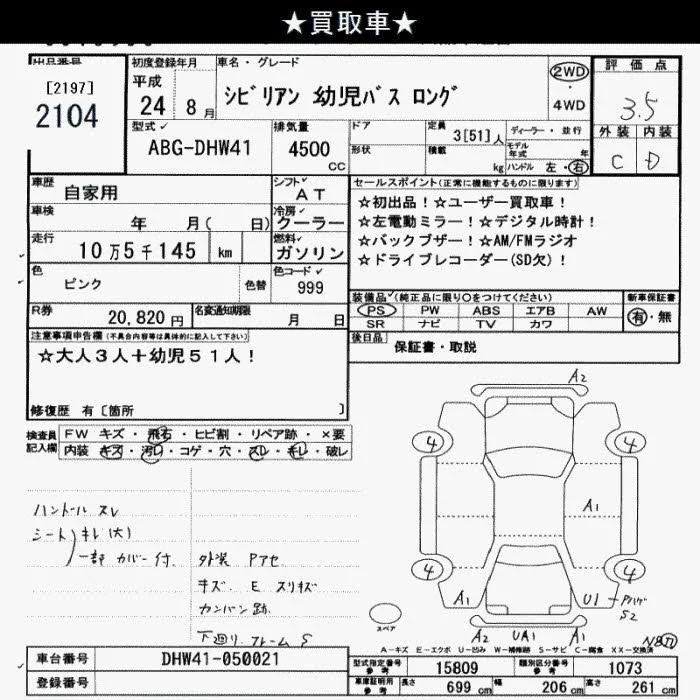 ★買取車★
出品番号
[2197]
2104
初度登録年月
平成
24年 8月
車名・グレード
シビリアン 幼児バス ロング
2WD
4WD
評価点
3.5
外装 内装
C D
型式
ABG-DHW41
排気量
4500
CC
ドア
形状
定員
3[51]人
積載
kg
ディーラー・並行
モデル年式 年
ハンドル 左・右
車歴
自家用
シフト
AT
車検
年 月( 日)
冷房
クーラー
走行
10万5千145 km
燃料
ガソリン
色
ピンク
色替
色コード
999
セールスポイント(正常に機能するものに限ります)
☆初出品!☆ユーザー買取車!
☆左電動ミラー!☆デジタル時計!
☆バックブザー!☆AM/FMラジオ
☆ドライブレコーダー(SD欠)!
R券
20,820円
名変通知期限
月 日
装備品(純正品に限り○をつけてください)
PS PW ABS エアB AW
SR ナビ TV カワ
新車保証書
有・無
後日品
保証書・取説
注意事項申告欄(不具合内容等は具体的に記入して下さい)
☆大人3人+幼児51人!
修復歴 有〔箇所 〕
検査員記入欄
FW キズ・飛石・ヒビ割・リペア跡・×要
内装 キズ・汚レ・コゲ・穴・スレ・キレ・破レ
ハンドル スレ
シート キレ(大)
一部 カバー付
外装 Pアセ
キズ E スリキズ
カンバン跡
下廻り フレーム S
A2
4 4
A1
4 4
A1
U1
Pハゲ
S2
A2 UA1 A1
スペア
A-キズ E-エクボ U-凹み W-補修跡 S-サビ C-腐食 XX-交換済
車台番号
DHW41-050021
登録番号
型式指定番号
参考
15809
類別区分番号
参考
1073
車庫証明用
参考
長さ 699cm 幅 206cm 高さ 261cm